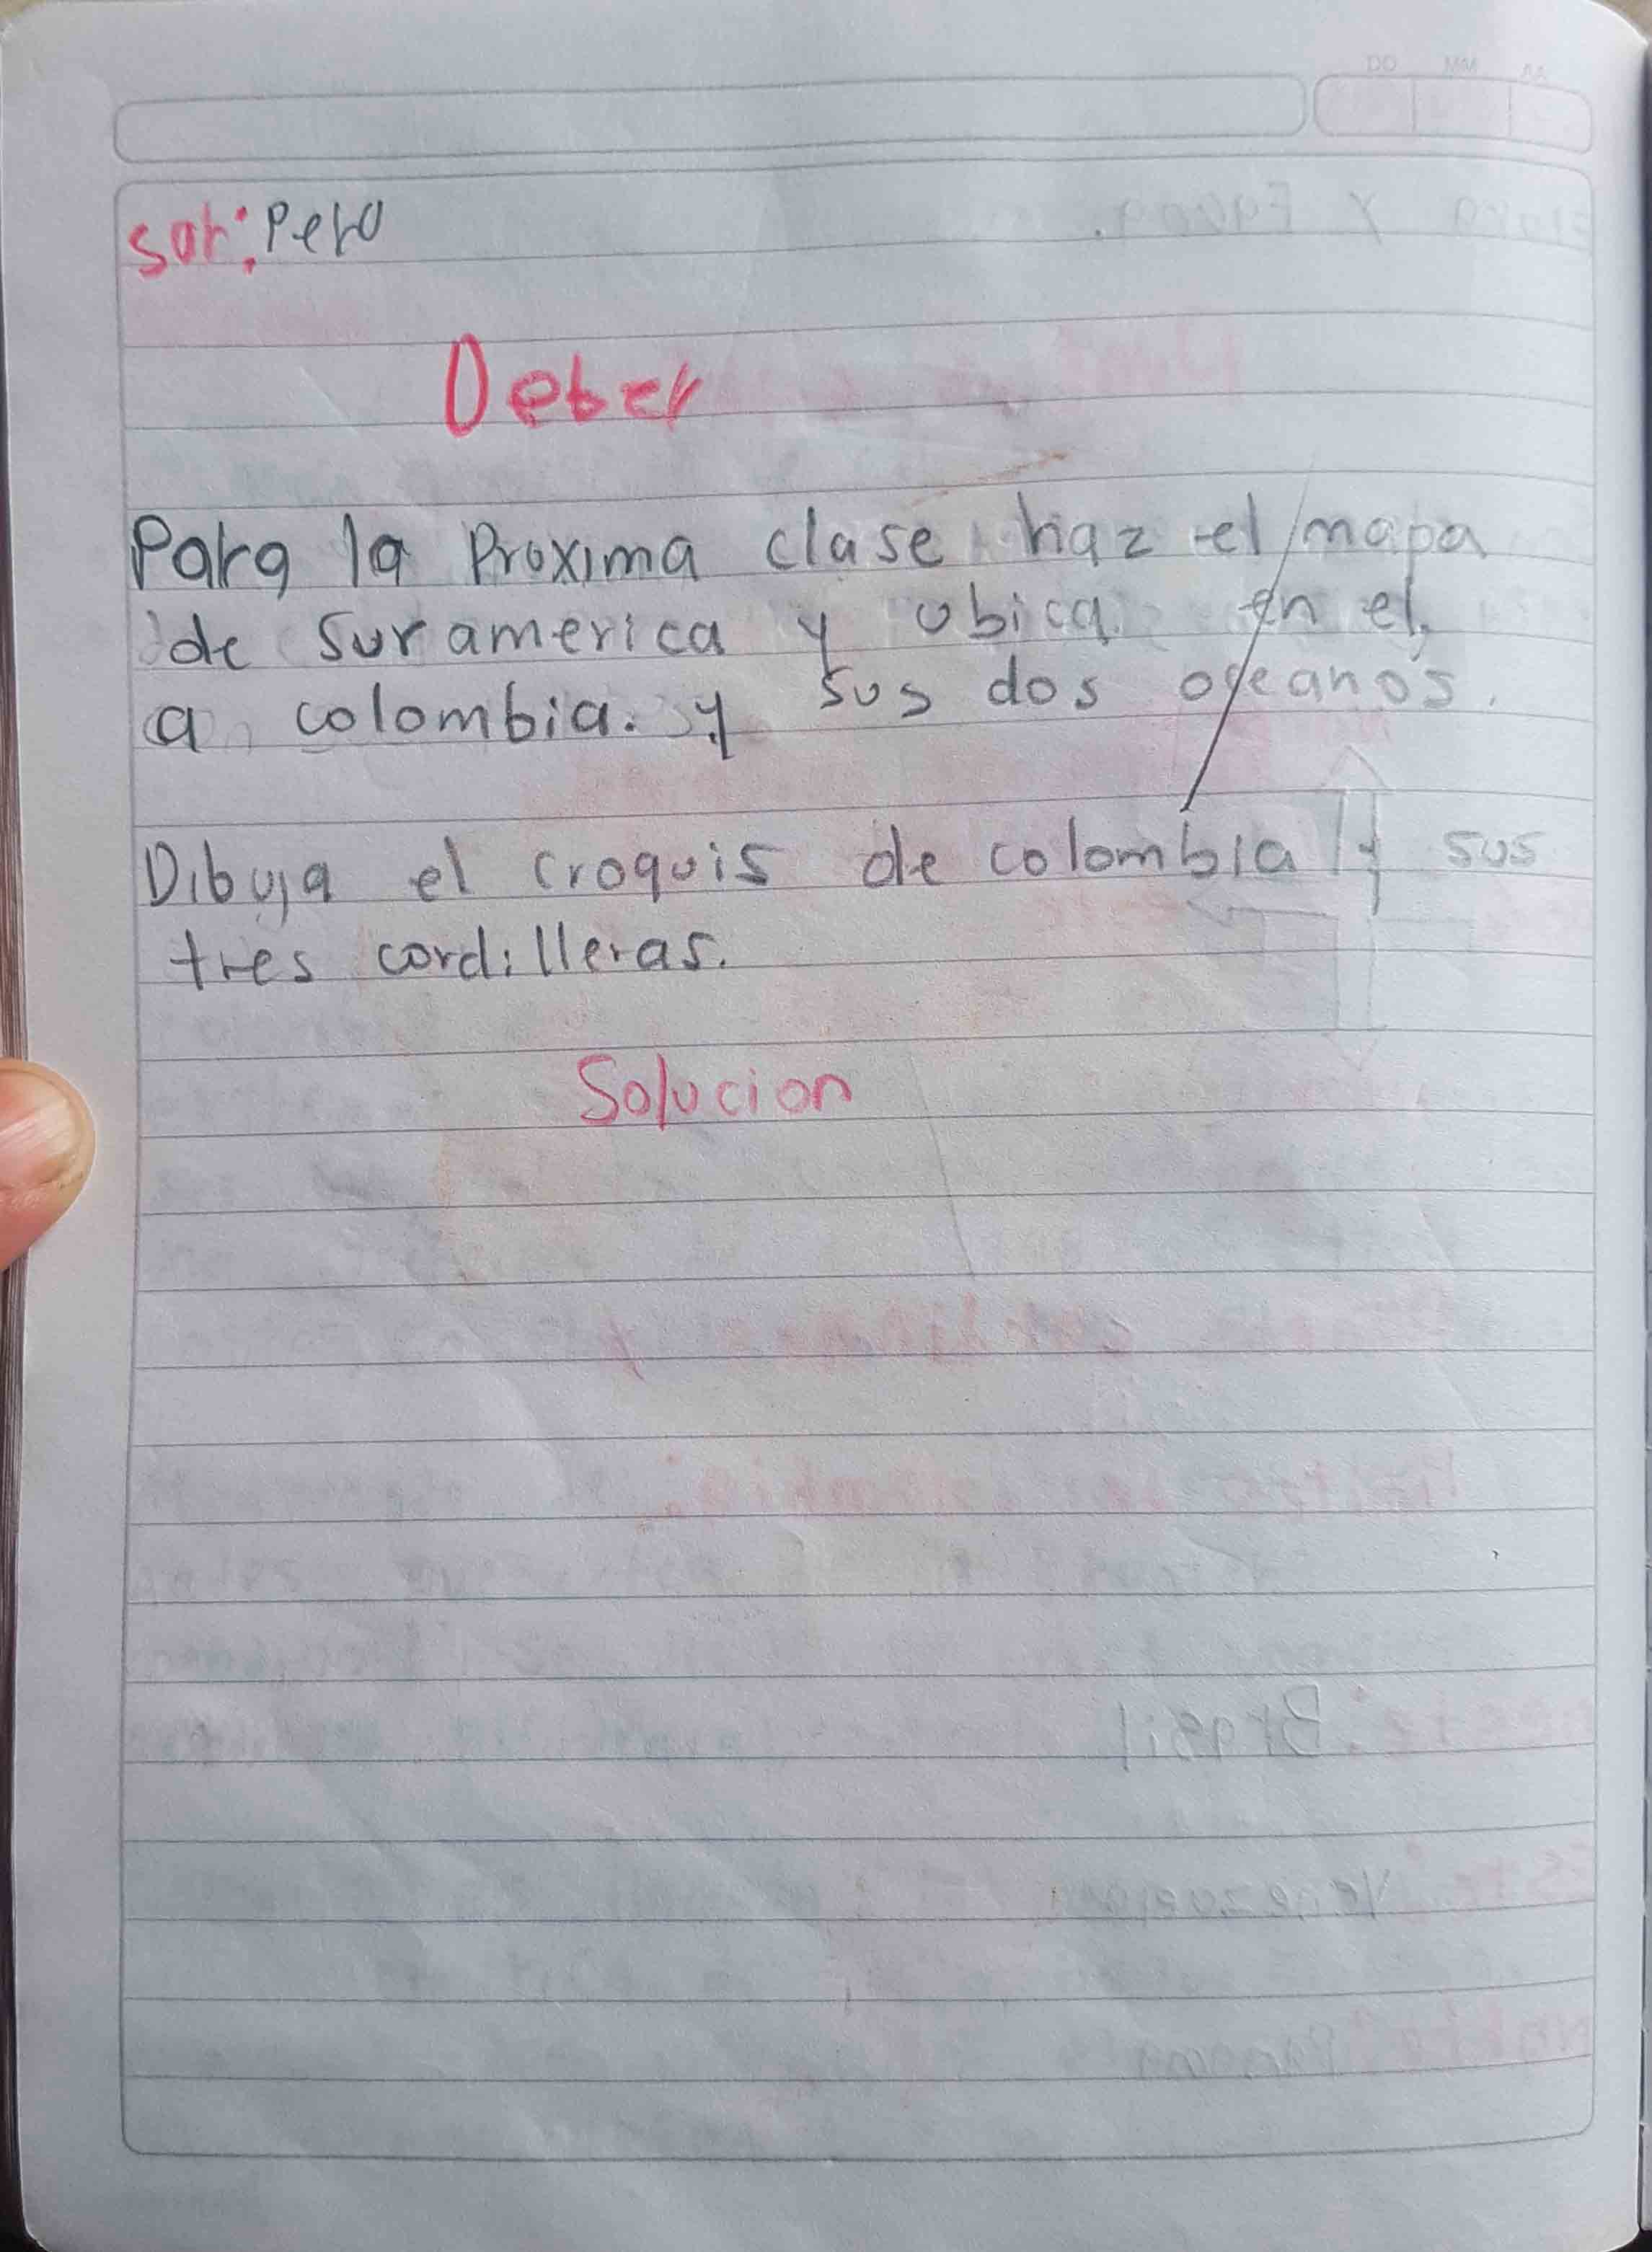 DD MM AA
sur: Peru
Deber
Para la Proxima clase haz el mapa
de Suramerica y ubica en el,
a colombia. y sus dos oceanos.
Dibuja el croquis de colombia y sus
tres cordilleras.
Solucion